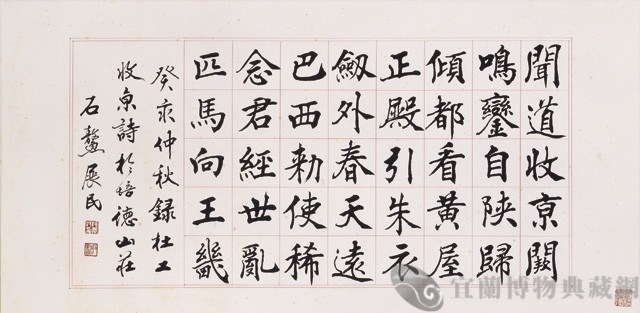 聞道收京闕
鳴鑾自陝歸
傾都看黃屋
正殿引朱衣
劒外春天遠
巴西勅使稀
念君經世亂
匹馬向王畿
癸亥仲秋録杜工
收京詩於培德山莊
石鰲展民
宜蘭博物典藏網